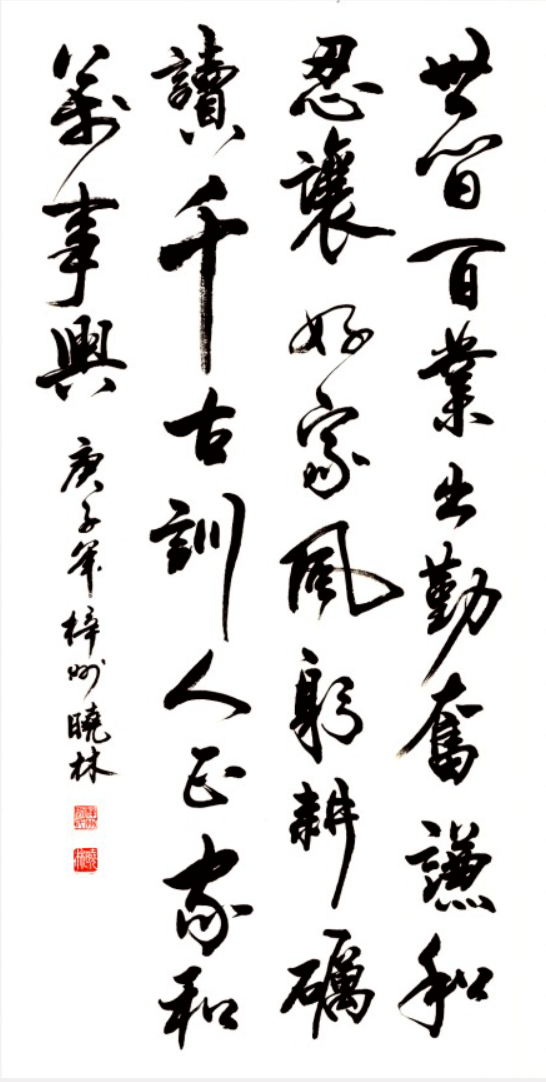 世間百業出勤奮謙和
忍讓好家風躬耕礪
讀千古訓人正家和
萬事興
庚子年梓州曉林